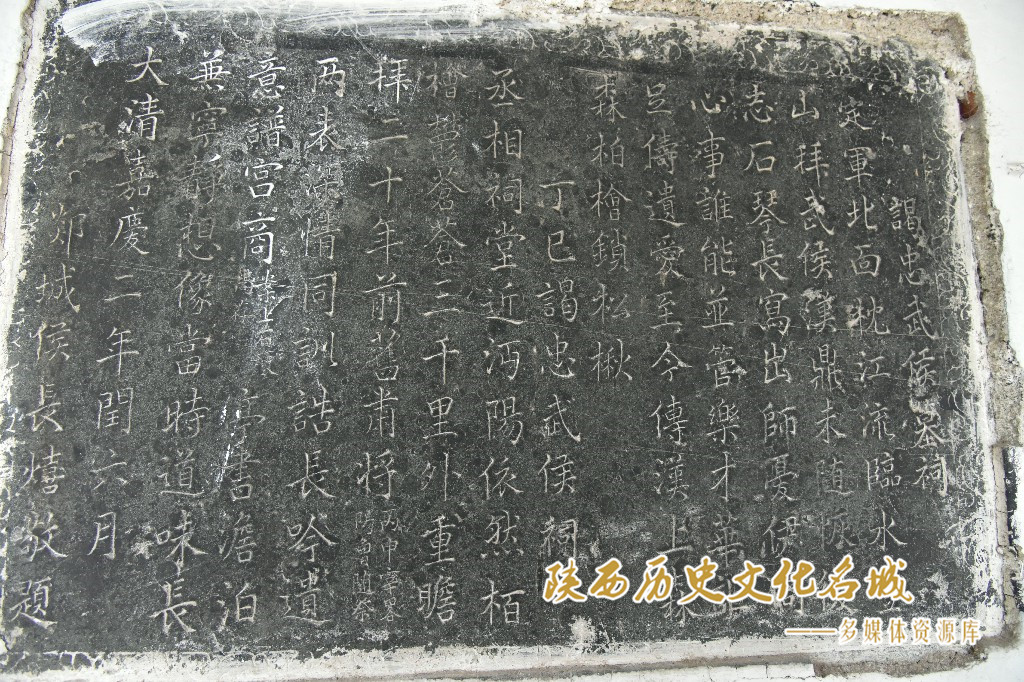 謁忠武侯墓祠
定軍北面枕江流臨水
山拜武侯漢鼎未随恢
志石琴長寫出師憂伊
心事誰能並管樂才華
足儔遺愛至今傳漢上
森柏檜鎖松楸
丁巳謁忠武侯祠
丞相祠堂近沔陽依然栢
檜欝蒼蒼三千里外重瞻
拜二十年前舊甫將
两表情同訓誥長吟遺
意譜宫商 書澹泊
兼寧靜想像當時道味長
大清嘉慶二年閏六月
郯城侯長熺敬題
陕西历史文化名城
——多媒体资源库